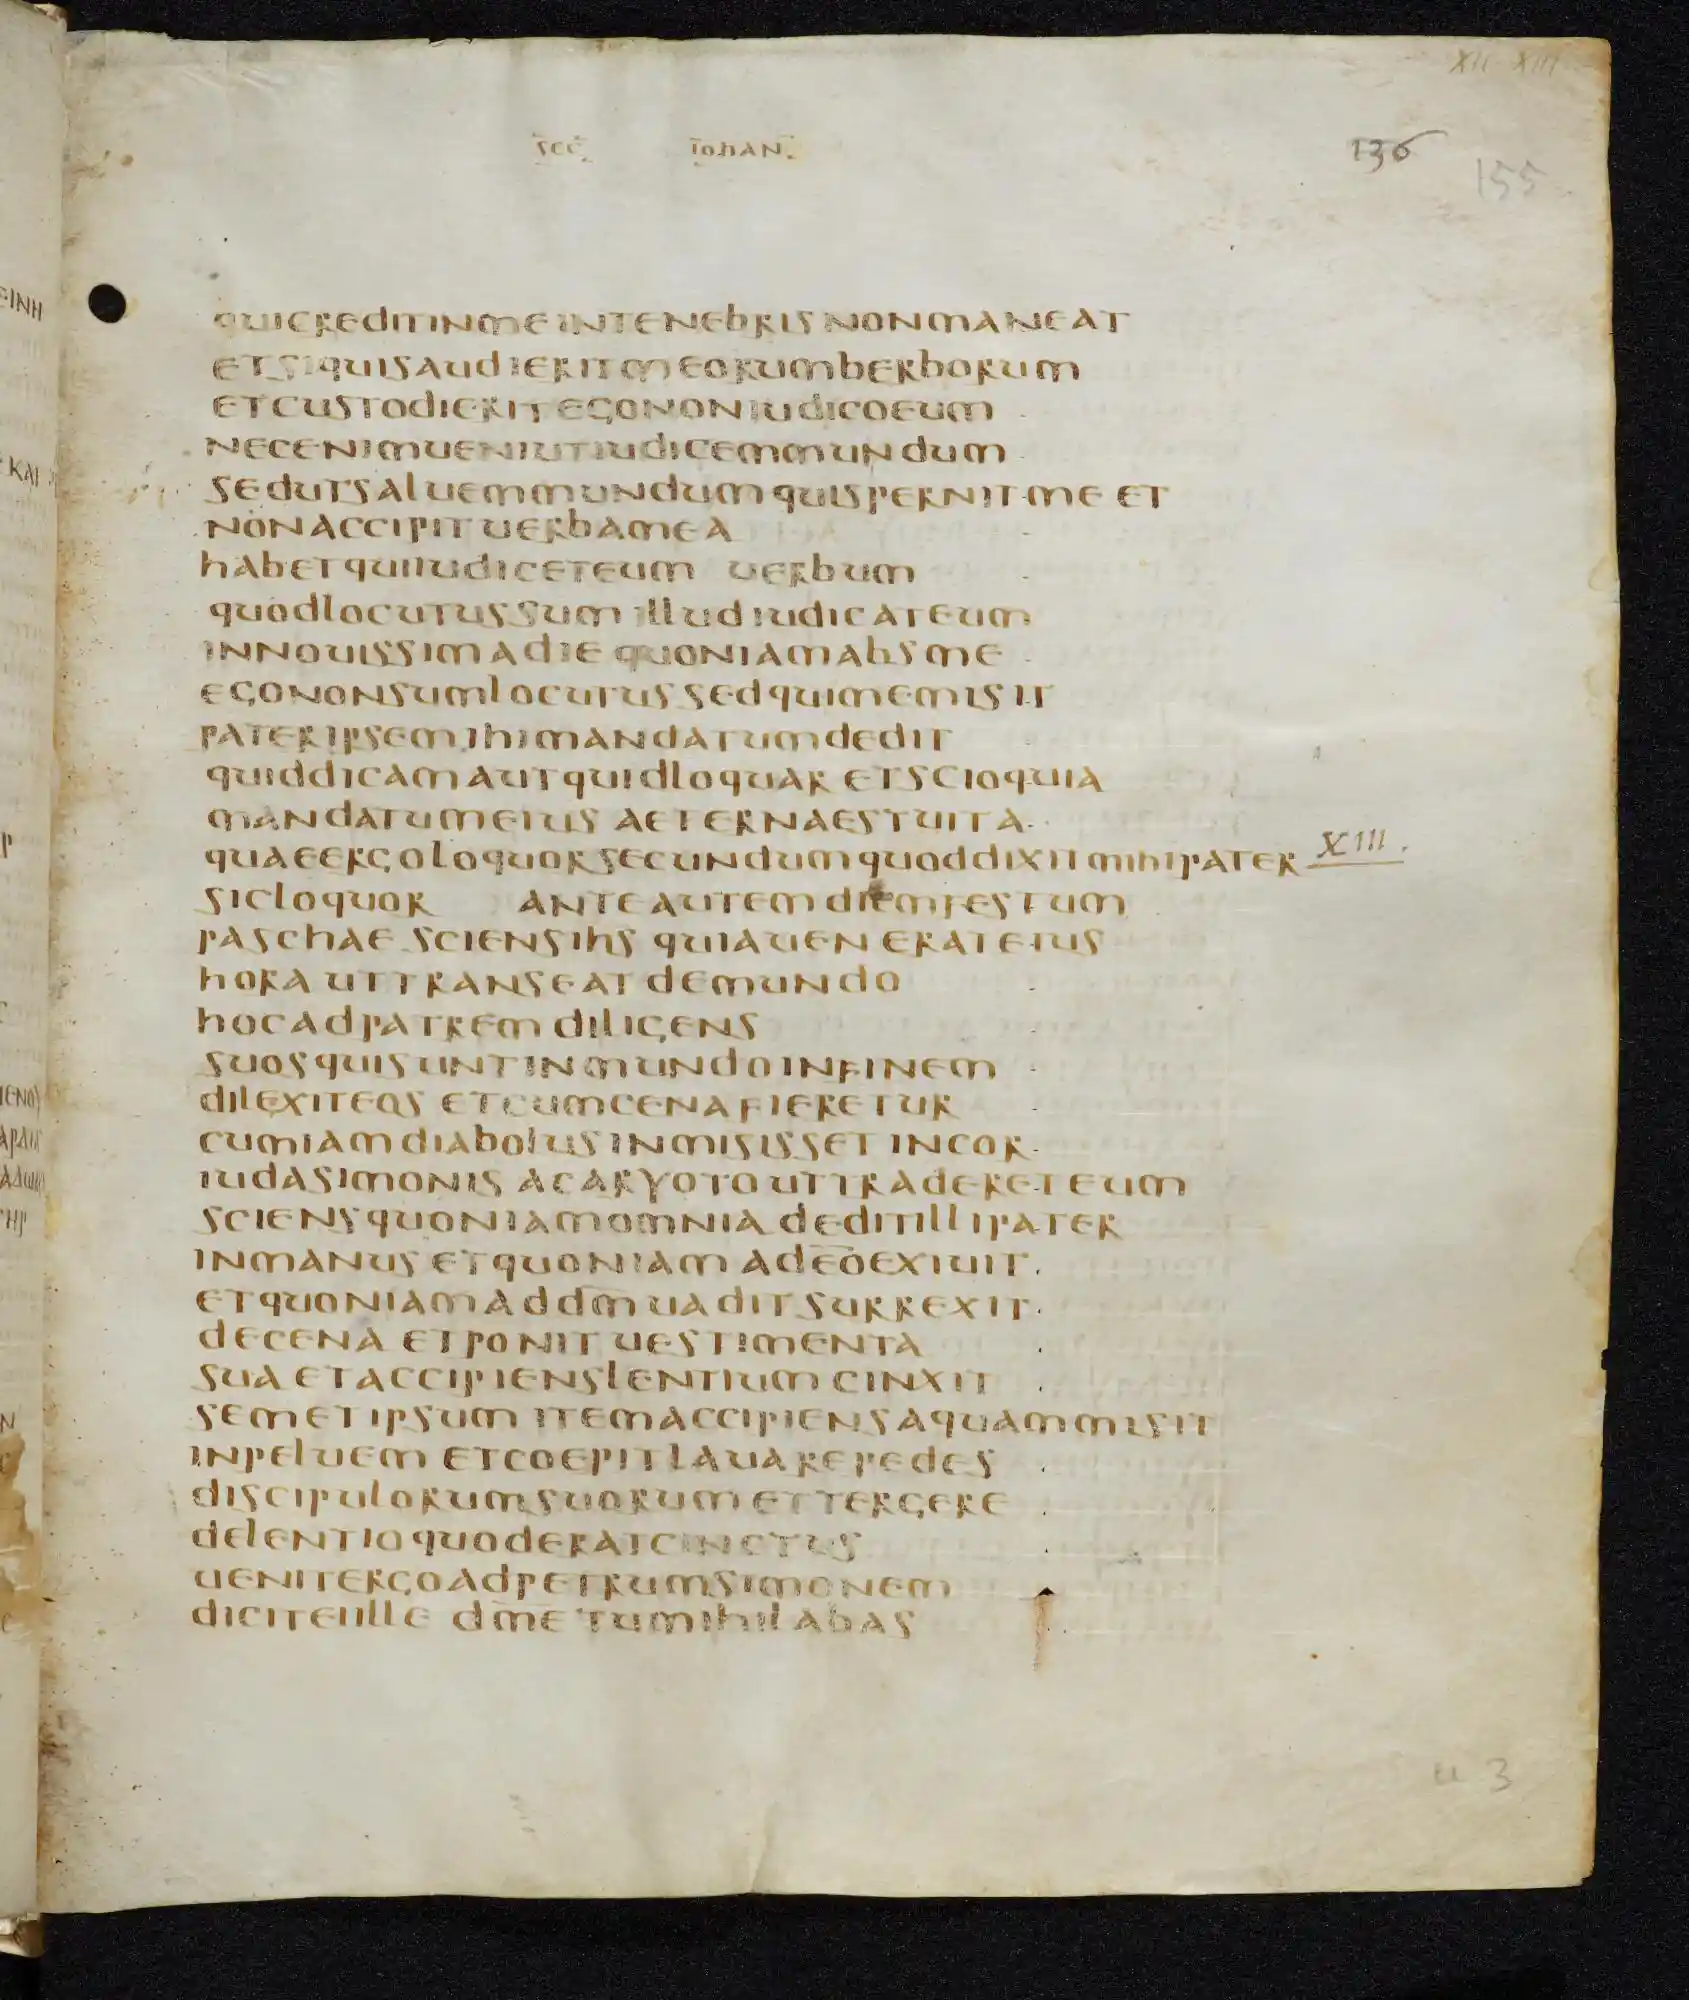 XII XIII
SEC IOHAN
136
155
QUICREDITINMEINTENEBRISNONMANEAT
ETSIQUISAUDIERITMEORUMBERBORUM
ETCUSTODIERITEGONONIUDICOEUM
NECENIMUENIUTIUDICEMMUNDUM
SEDUTSALUEMMUNDUM QUISPERNITME ET
NONACCIPITUERBAMEA
HABETQUIIUDICETEUM UERBUM
QUODLOCUTUSSUM ILLUDIUDICATEUM
INNOUISSIMADIE QUONIAMABSME
EGONONSUMLOCUTUS SEDQUIMEMISIT
PATERIPSEMIHIMANDATUMDEDIT
QUIDDICAMAUTQUIDLOQUAR ETSCIOQUIA
MANDATUMEIUS AETERNAESTUITA
QUAEERGOLOQUORSECUNDUMQUODDIXITMIHIPATER XIII.
SICLOQUOR ANTEAUTEMDIEMFESTUM
PASCHAE SCIENSIHS QUIAUENERATEIUS
HORA UTTRANSEAT DEMUNDO
HOCADPATREM DILIGENS
SUOSQUISUNTINMUNDOINFINEM
DILEXITEOS ETCUMCENAFIERETUR
CUMIAMDIABOLUSINMISISSET INCOR
IUDASIMONIS ACARYOTOUTTRADERETEUM
SCIENSQUONIAMOMNIA DEDITILLIPATER
INMANUS ETQUONIAM ADEOEXIUIT
ETQUONIAMADDM̅UADIT SURREXIT
DECENA ETPONIT UESTIMENTA
SUA ETACCIPIENSLENTIUM CINXIT
SEMETIPSUM ITEMACCIPIENSAQUAMMISIT
INPELUEM ETCOEPITLAUAREPEDES
DISCIPULORUMSUORUM ETTERGERE
DELENTIOQUODERATCINCTUS
UENITERGOADPETRUMSIMONEM
DICITEIILLE DM̅E TUMIHILABAS